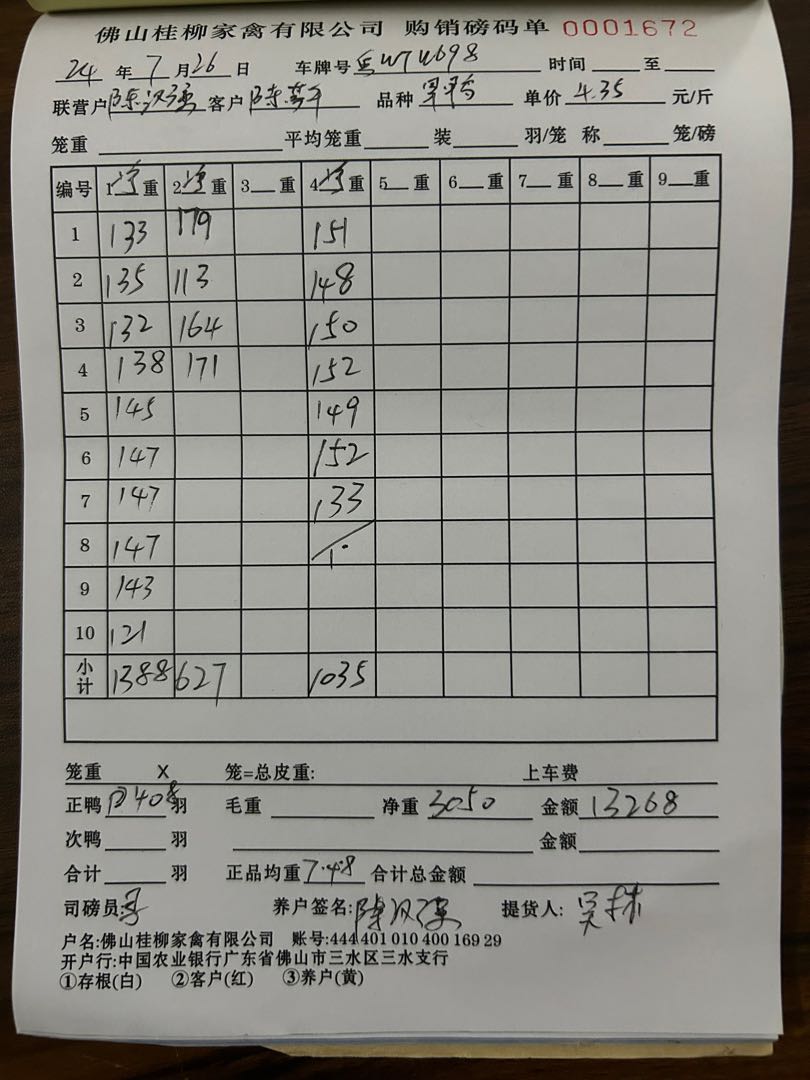 佛山桂柳家禽有限公司 购销磅码单 0001672
24 年 7 月 26 日 车牌号 时间 至
联营户 陈汉强 客户 品种 单价 4.35 元/斤
笼重 平均笼重 装 羽/笼 称 笼/磅
编号 1 净 重 2 净 重 3 重 4 净 重 5 重 6 重 7 重 8 重 9 重
1 133 179 151
2 135 113 148
3 132 164 150
4 138 171 152
5 145 149
6 147 152
7 147 133
8 147
9 143
10 121
小计 1388 627 1035
笼重 X 笼=总皮重: 上车费
正鸭 408 羽 毛重 净重 3050 金额 13268
次鸭 羽 金额
合计 羽 正品均重 7.48 合计总金额
司磅员: 养户签名: 陈汉强 提货人:
户名:佛山桂柳家禽有限公司 账号:444 401 010 400 169 29
开户行:中国农业银行广东省佛山市三水区三水支行
①存根(白) ②客户(红) ③养户(黄)